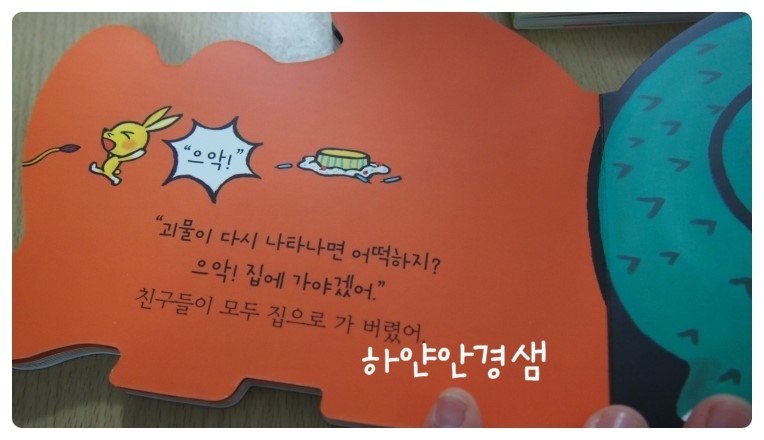 “으악!”
“괴물이 다시 나타나면 어떡하지?
으악! 집에 가야겠어.”
친구들이 모두 집으로 가 버렸어.
하얀안경샘